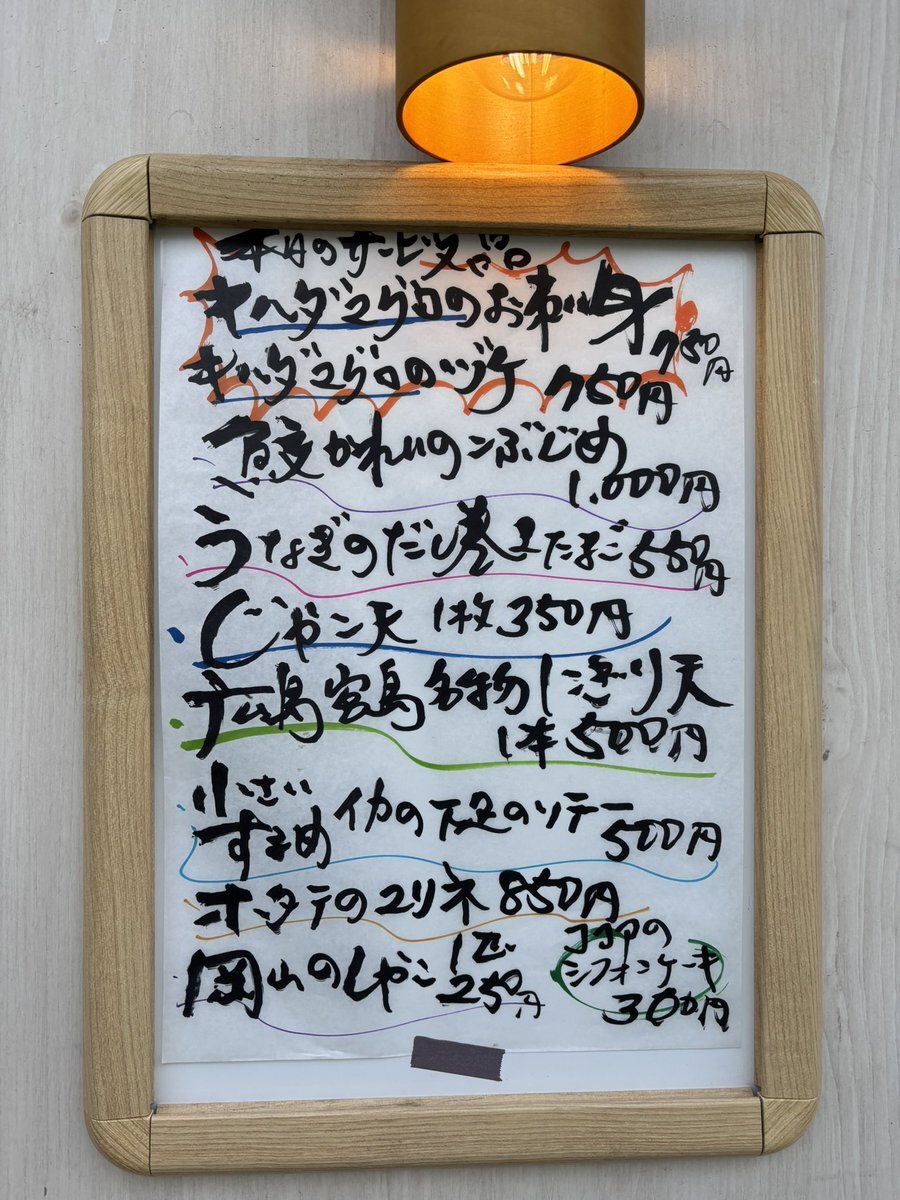 本日のサービス品
キハダマグロのお刺身
750円
キハダマグロのヅケ 750円
かれいのこぶじめ
1,000円
うなぎのだし巻きたまご 550円
じゃこ天 1枚 350円
広島宮島名物 にぎり天
1本 500円
小さい
するめ イカの下足のソテー
500円
ホタテのマリネ 850円
岡山のしゃこ 1匹
250円
ココアの
シフォンケーキ
300円